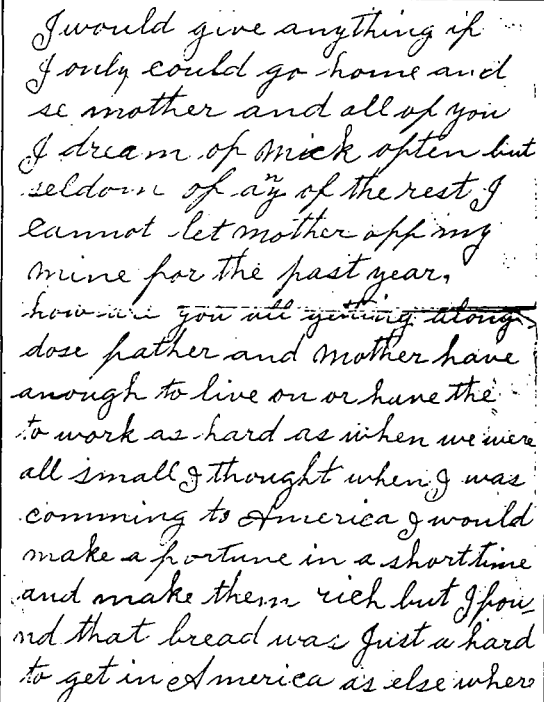 I would give anything if
I only could go home and
se mother and all of you
I dream of Mick often but
seldom of any of the rest I
cannot let mother off my
mine for the past year,
how are you all getting along
dose father and Mother have
anough to live on or have the
to work as hard as when we were
all small I thought when I was
comming to America I would
make a fortune in a short time
and make them rich but I fou_
nd that bread was Just a hard
to get in America as else where